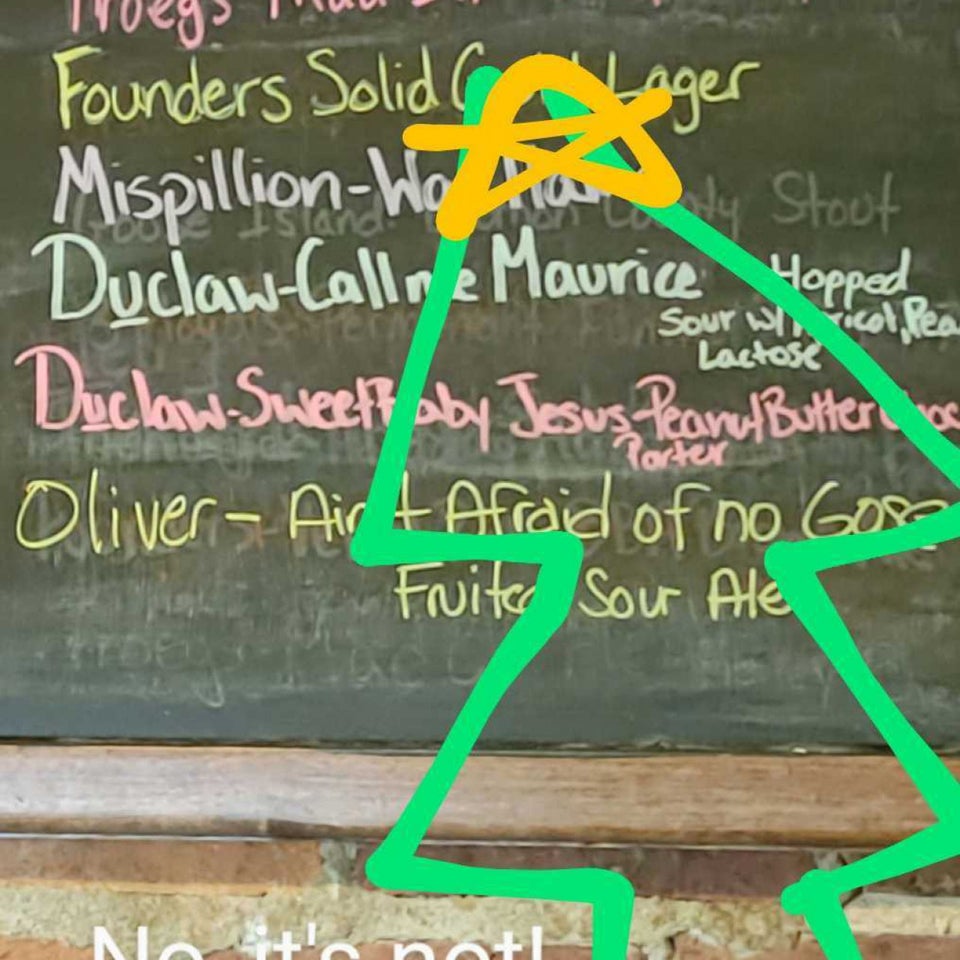 Troegs Mad
Founders Solid Lager
Mispillion-
Goose Island County Stout
Duclaw-Call me Maurice Hopped
Sour w/
Lactose
Duclaw-Sweet Baby Jesus-Peanut Butter
Porter
Oliver- Ain't Afraid of no Gose
Sour Ale
No, it's not!